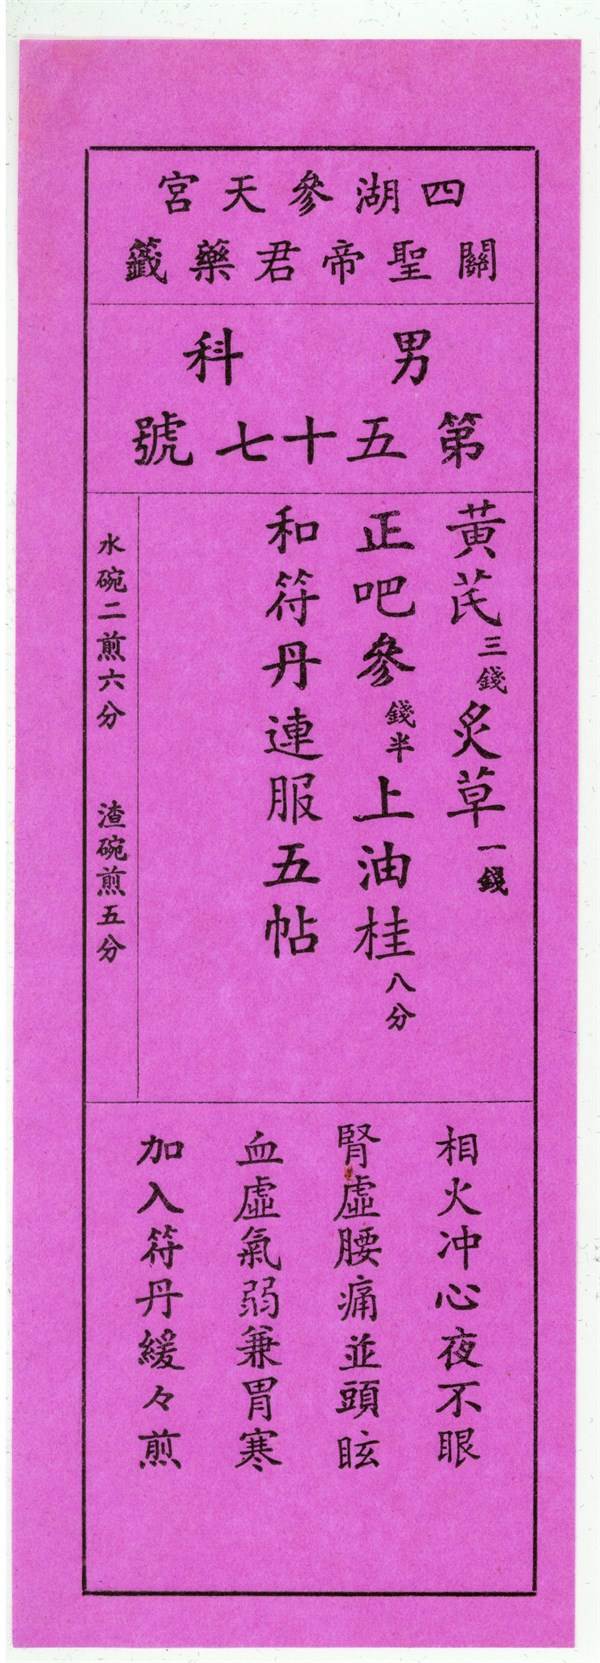 四湖參天宮
關聖帝君藥籤
男科
第五十七號
黃芪三錢炙草一錢
正吧參錢半上油桂八分
和符丹連服五帖
水碗二煎六分　渣碗煎五分
相火冲心夜不眠
腎虛腰痛並頭眩
血虛氣弱兼胃寒
加入符丹緩々煎